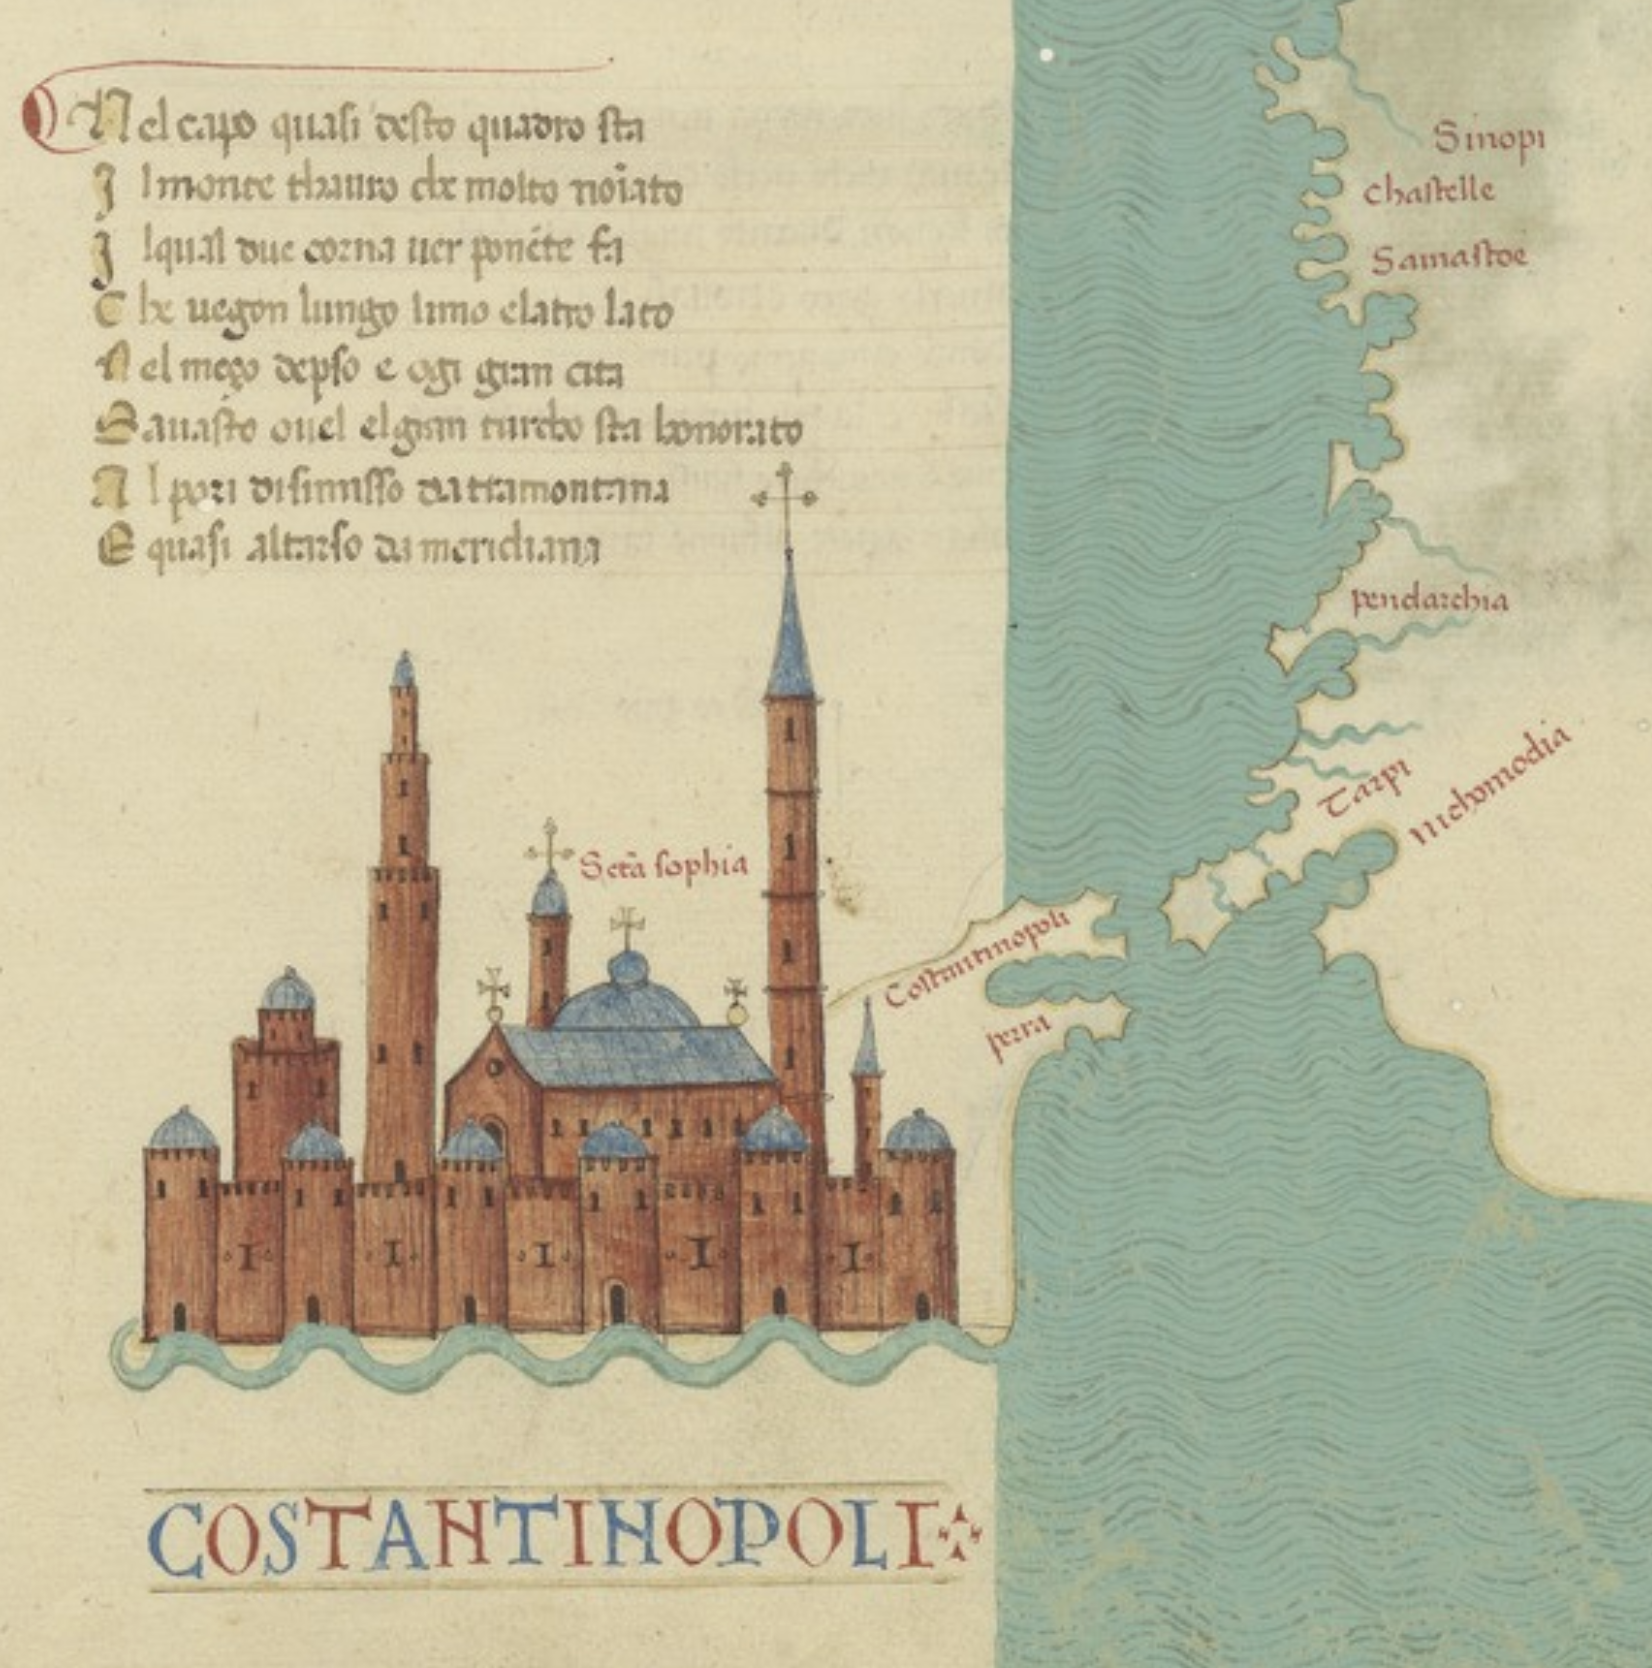 Nel capo quasi desto quadro sta
Jl monte thauro che molto noīato
Jlqual due corna uer ponēte fa
Che uegon lungo luno elatro lato
Nel meço depso e ogi gran cita
Sauasto ouel elgran turcho sta honorato
Al pari disimisso da tramontana
E quasi altarso da meridiana
Sinopi
chastelle
Samastoe
pendarchia
Tarpi
nichomodia
Sctā sophia
Costantinopoli
perra
COSTANTINOPOLI